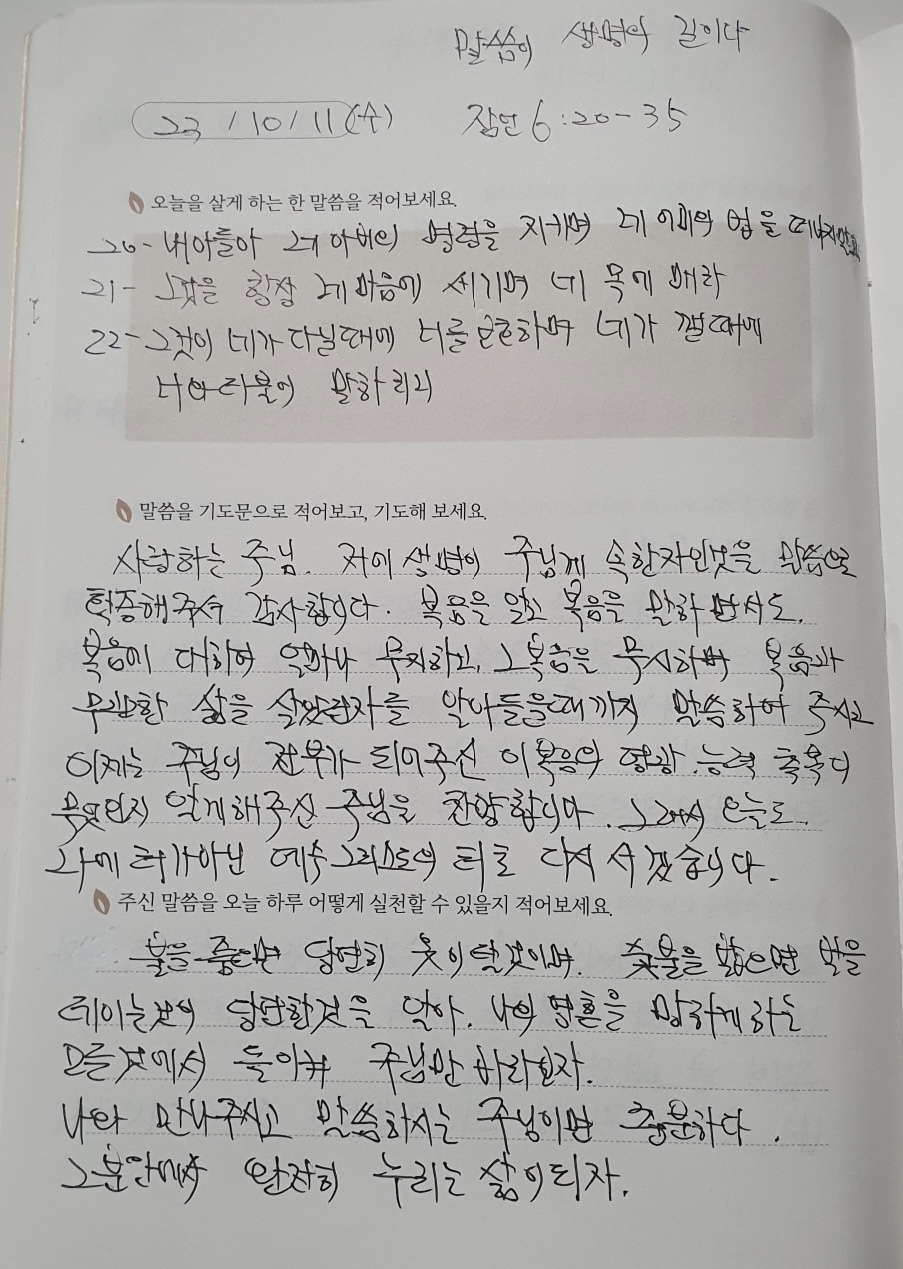 말씀이 생명의 길이다
23 / 10 / 11 (수) 잠언 6:20-35
오늘을 살게 하는 한 말씀을 적어보세요.
20- 내아들아 네 아비의 명령을 지키며 네 어미의 법을 떠나지말고
21- 그것을 항상 네 마음에 새기며 네 목에 매라
22- 그것이 네가 다닐때에 너를 보호하며 네가 깰때에
너와 더불어 말하리니
말씀을 기도문으로 적어보고, 기도해 보세요.
사랑하는 주님. 저에 생명이 주님께 속한자인것을 말씀으로
확증해주셔 감사합니다. 복음을 알고 복음을 말하면서도.
복음에 대하여 얼마나 무지하고, 그복음을 무시하며 복음과
무관한 삶을 살았던자를 알아들을때까지 말씀하여 주시고
이제는 주님이 전부가 되어주신 이복음의 영광.능력 축복이
무엇인지 알게해주신 주님을 찬양합니다. 그래서 오늘도.
나에 터가아닌 예수그리스도의 터로 다시 서겠습니다.
주신 말씀을 오늘 하루 어떻게 실천할 수 있을지 적어보세요.
불을 품으면 당연히 옷이탈것이며. 숯불을 밟으면 발을
데이는것이 당연한것을 알아. 나의 영혼을 망하게 하는
모든것에서 돌이켜 주님만 바라보자.
나와 만나주시고 말씀하시는 주님이면 충분하다.
그분안에서 완전히 누리는 삶이되자.